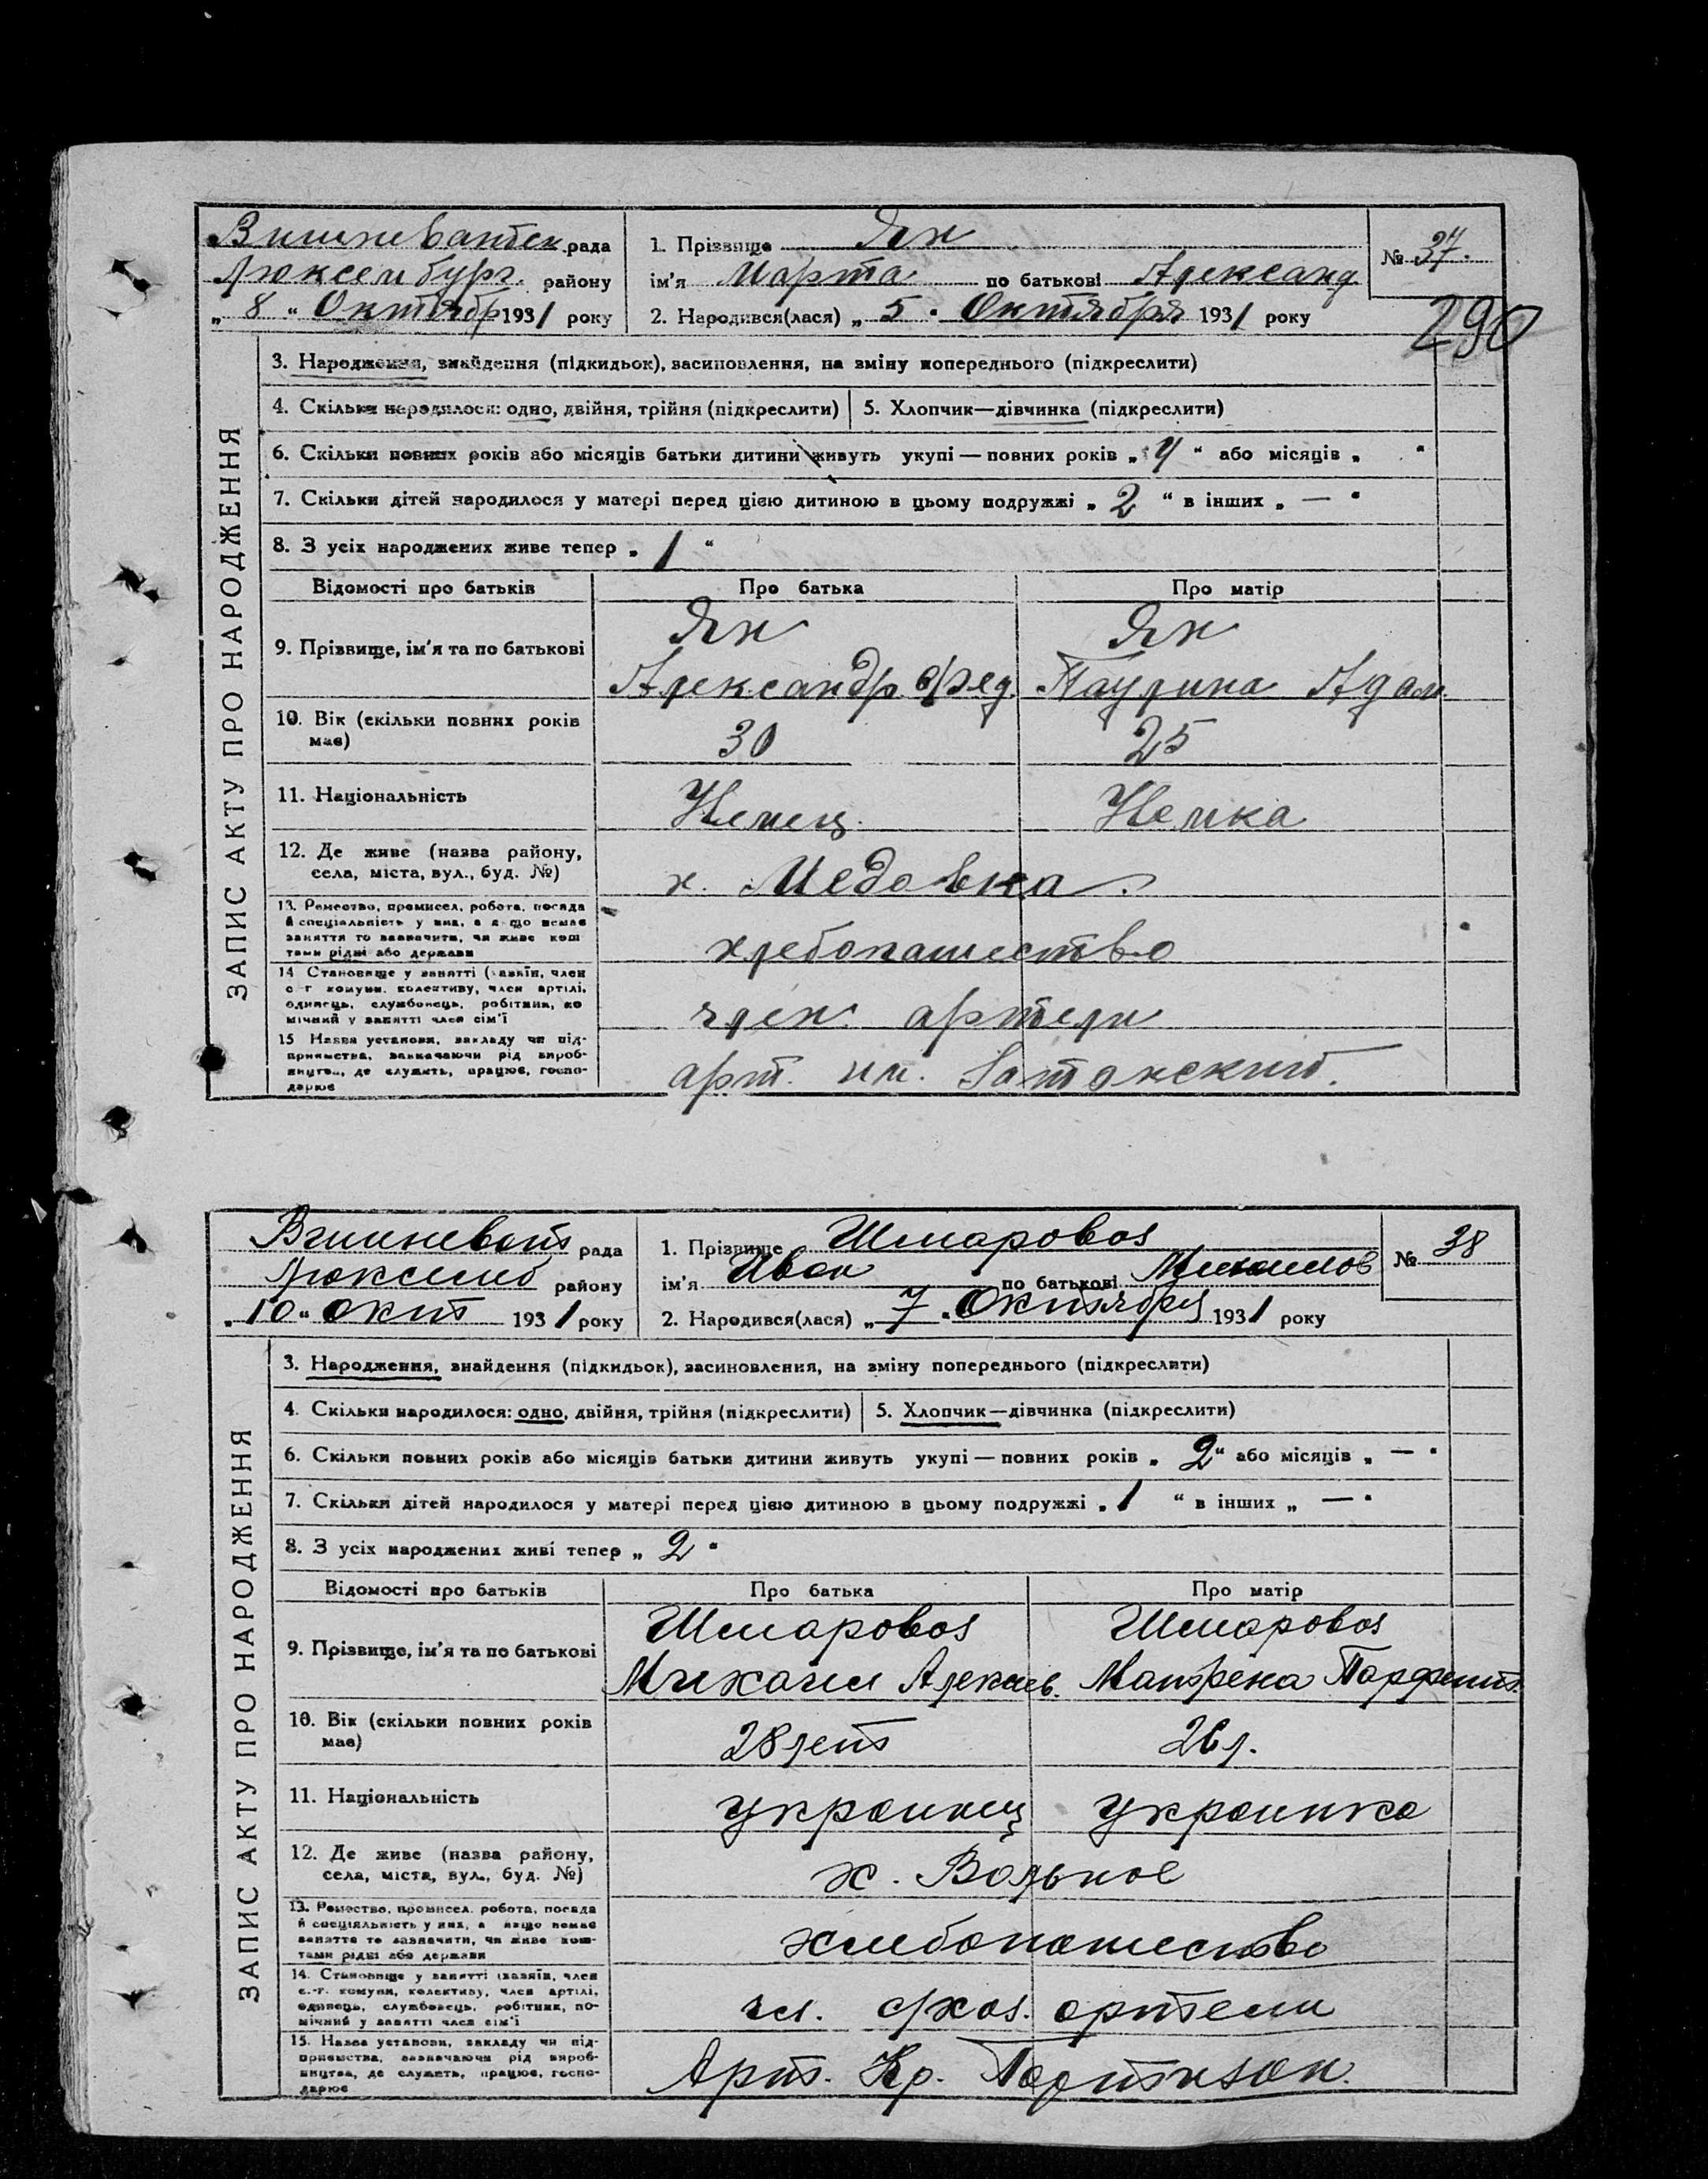 Вишневатск. рада
Люксембург. району
„ 8 “ Октябр 1931 року
1. Прізвище Ян
ім'я Марта по батькові Александ
2. Народився(лася) „ 5 “ Октября 1931 року
№ 37.
290
ЗАПИС АКТУ ПРО НАРОДЖЕННЯ
3. Народження, знайдення (підкидьок), засиновлення, на зміну попереднього (підкреслити)
4. Скільки народилося: одно, двійня, трійня (підкреслити)
5. Хлопчик—дівчинка (підкреслити)
6. Скільки повних років або місяців батьки дитини живуть укупі — повних років „ 4 “ або місяців „ “
7. Скільки дітей народилося у матері перед цією дитиною в цьому подружжі „ 2 “ в інших „ — “
8. З усіх народжених живе тепер „ 1 “
Відомості про батьків Про батька Про матір
9. Прізвище, ім'я та по батькові
Ян
Александр Фред.
Ян
Паулина Адам.
10. Вік (скільки повних років має)
30
25
11. Національність
Немец
Немка
12. Де живе (назва району,
села, міста, вул., буд. №)
х. Медовка
13. Ремество, промисел, робота, посада
й спеціяльність у них, а якщо немає
заняття то зазначити, чи живе кош
тами рідні або держави
хлебопашество
14 Становище у занятті (хазяїн, член
с-г комуни, колективу, член артілі,
одинець, службовець, робітник, по
мічний у занятті член сім'ї
член артели
15 Назва установи, закладу чи під-
приємства, зазначаючи рід вироб-
ництва, де служить, працює, госпо-
дарює
арт. им. Затонский.
Вишневат рада
Люксемб району
„ 10 “ окт 1931 року
1. Прізвище Шмаровоз
ім'я Иван по батькові Михаилов
2. Народився(лася) „ 7 “ Октября 1931 року
№ 38
ЗАПИС АКТУ ПРО НАРОДЖЕННЯ
3. Народження, знайдення (підкидьок), засиновлення, на зміну попереднього (підкреслити)
4. Скільки народилося: одно, двійня, трійня (підкреслити)
5. Хлопчик—дівчинка (підкреслити)
6. Скільки повних років або місяців батьки дитини живуть укупі — повних років „ 2 “ або місяців „ — “
7. Скільки дітей народилося у матері перед цією дитиною в цьому подружжі „ 1 “ в інших „ — “
8. З усіх народжених живі тепер „ 2 “
Відомості про батьків Про батька Про матір
9. Прізвище, ім'я та по батькові
Шмаровоз
Михаил Алексеев.
Шмаровоз
Матрена Парфент.
10. Вік (скільки повних років має)
28 лет
26 л.
11. Національність
украинец
украинка
12. Де живе (назва району,
села, міста, вул., буд. №)
х. Вольное
13. Ремество, промисел, робота, посада
й спеціяльність у них, а якщо немає
заняття то зазначити, чи живе кош-
тами рідні або держави
хлебопашество
14. Становище у занятті (хазяїн, член
с.-г. комуни, колективу, член артілі,
одинець, службовець, робітник, по-
мічний у занятті член сім'ї
чл. с/хоз. артели
15. Назва установи, закладу чи під-
приємства, зазначаючи рід вироб-
ництва, де служить, працює, госпо-
дарює
Арт. Кр. Партизан.